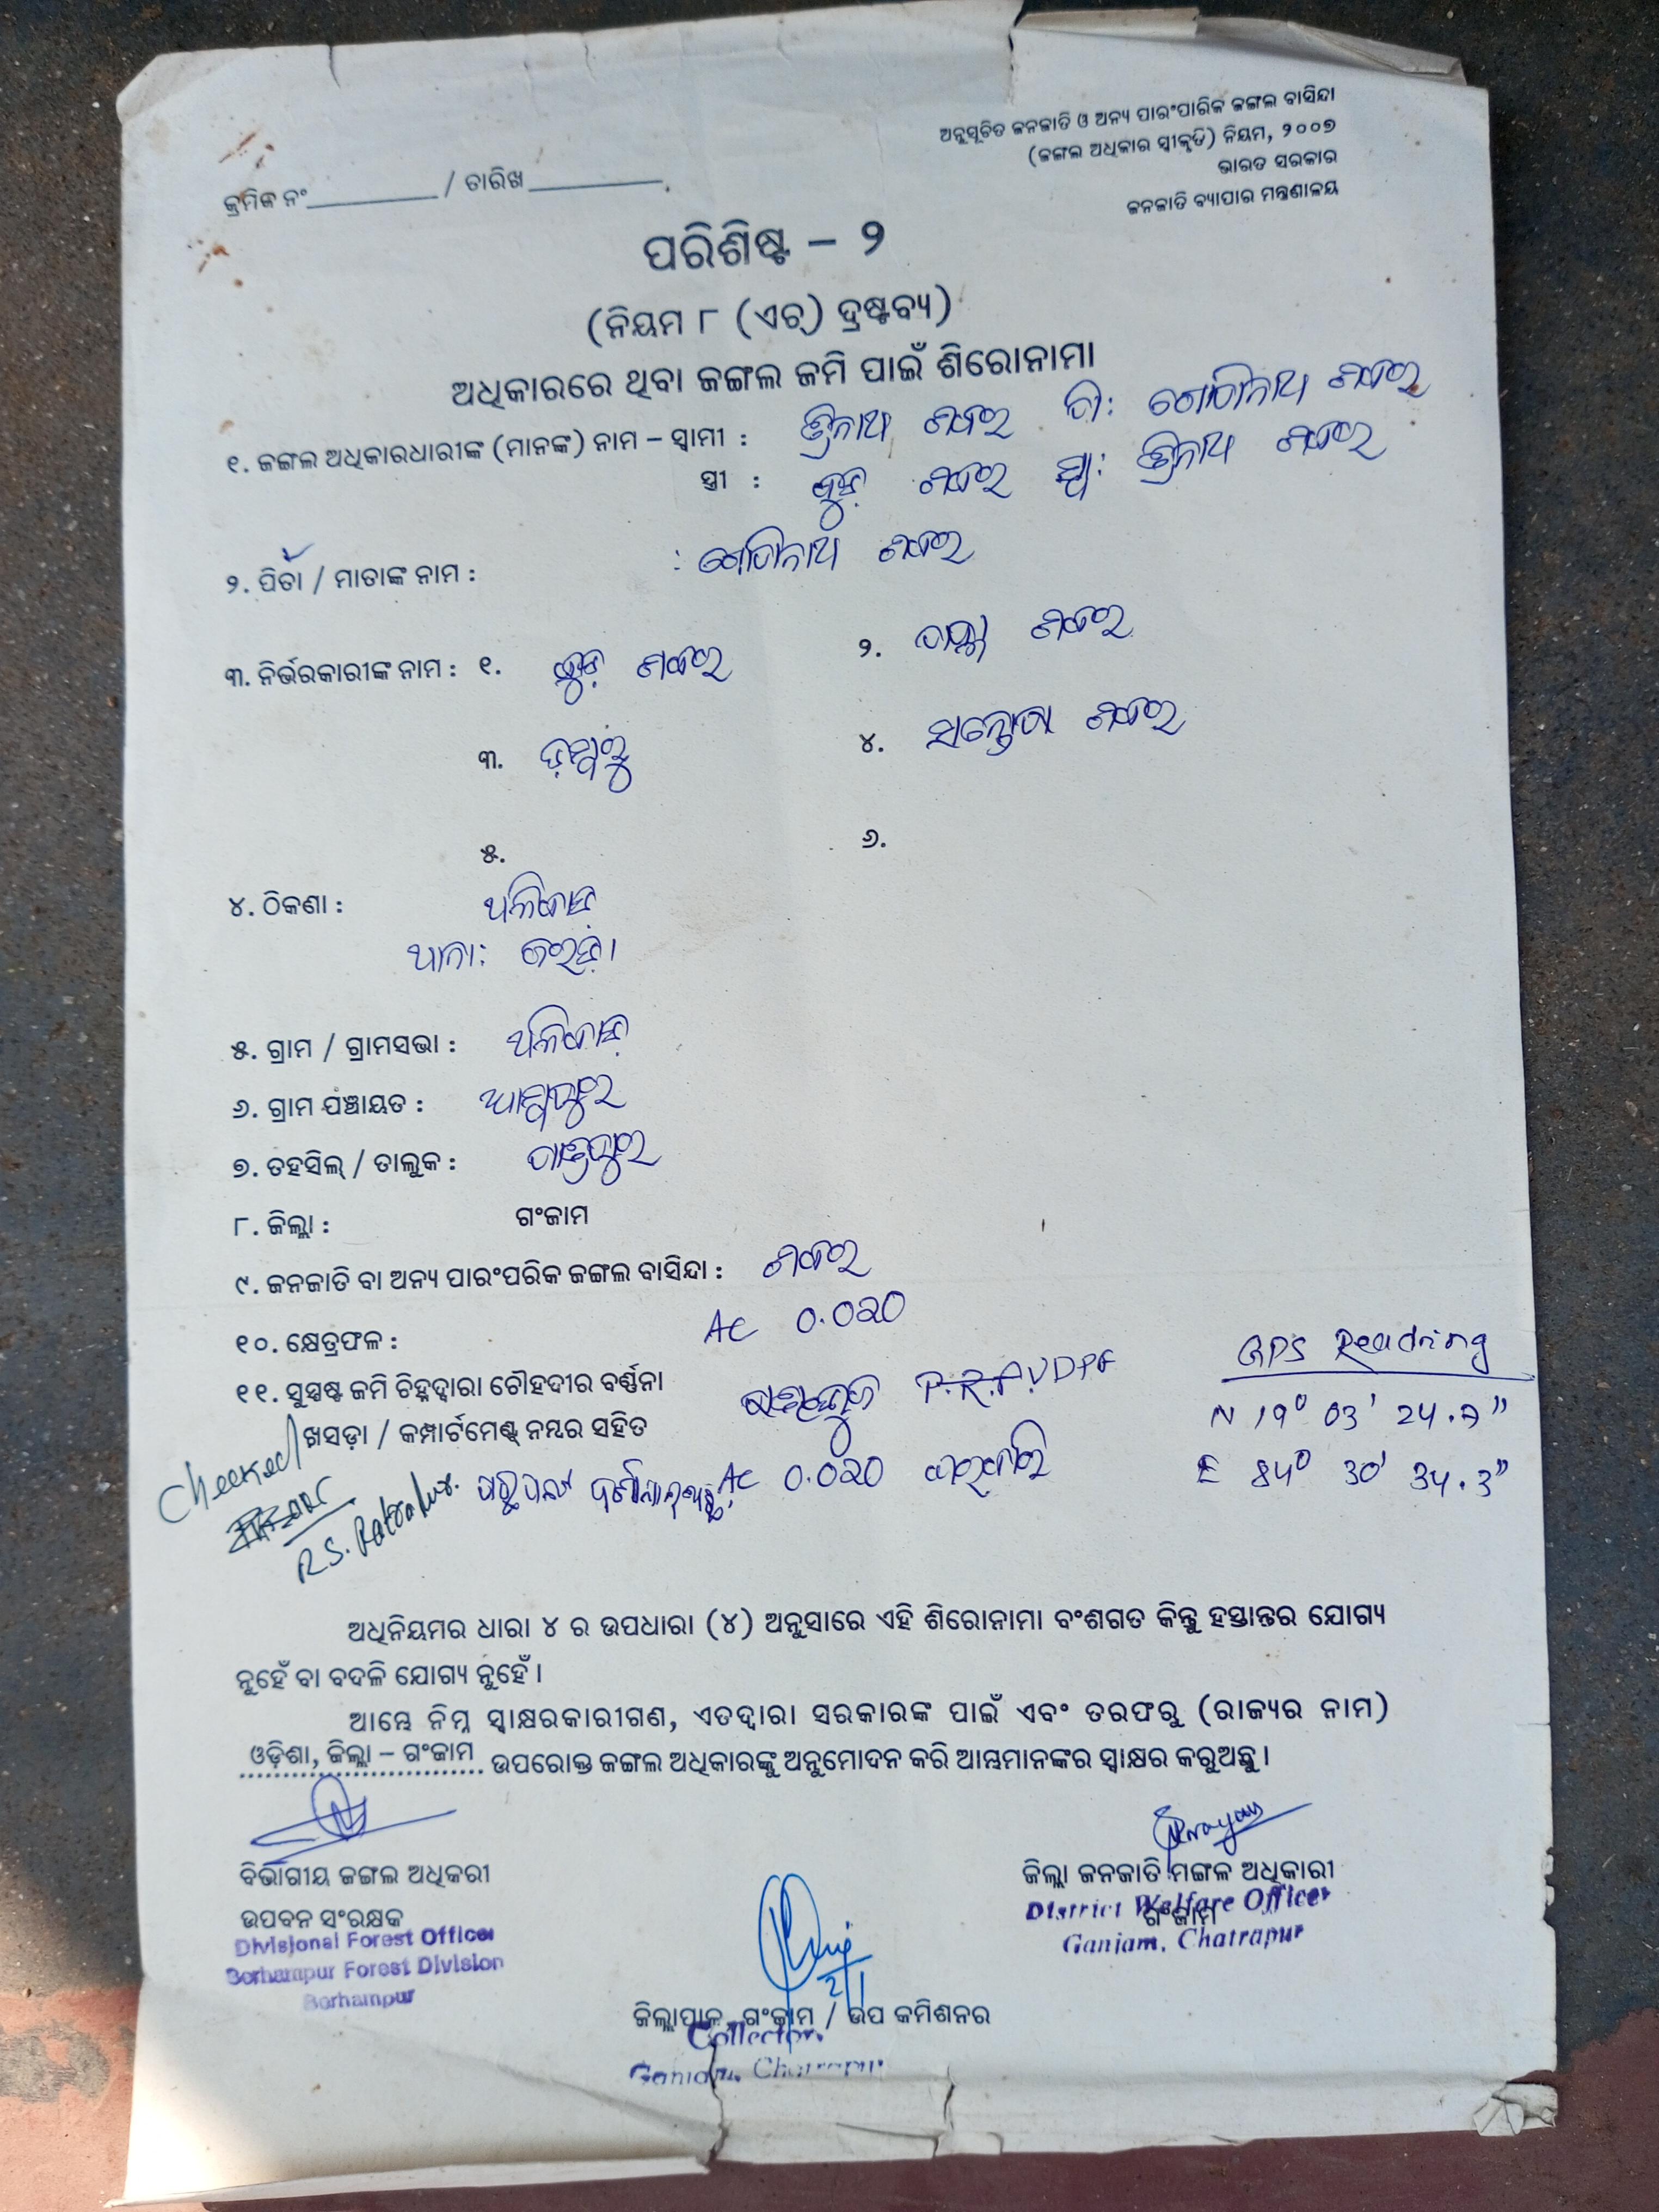 ଅନୁସୂଚିତ ଜନଜାତି ଓ ଅନ୍ୟ ପାରଂପାରିକ ଜଙ୍ଗଲ ବାସିନ୍ଦା
(ଜଙ୍ଗଲ ଅଧିକାର ସ୍ୱୀକୃତି) ନିୟମ, ୨୦୦୭
ଭାରତ ସରକାର
ଜନଜାତି ବ୍ୟାପାର ମନ୍ତ୍ରଣାଳୟ
କ୍ରମିକ ନଂ__________ / ତାରିଖ__________.
ପରିଶିଷ୍ଟ – ୨
(ନିୟମ ୮ (ଏଚ୍) ଦ୍ରଷ୍ଟବ୍ୟ)
ଅଧିକାରରେ ଥିବା ଜଙ୍ଗଲ ଜମି ପାଇଁ ଶିରୋନାମା
୧. ଜଙ୍ଗଲ ଅଧିକାରଧାରୀଙ୍କ (ମାନଙ୍କ) ନାମ – ସ୍ୱାମୀ : ତ୍ରିନାଥ ଶବର ପି: ଗୋପିନାଥ ଶବର
ସ୍ତ୍ରୀ : ଶବର ସ୍ୱା: ତ୍ରିନାଥ ଶବର
୨. ପିତା / ମାତାଙ୍କ ନାମ : ଗୋପିନାଥ ଶବର
୩. ନିର୍ଭରକାରୀଙ୍କ ନାମ : ୧. ଶବର ୨. ଶବର
୩. ୪. ଶବର
୫. ୬.
୪. ଠିକଣା :
ଥାନା:
୫. ଗ୍ରାମ / ଗ୍ରାମସଭା :
୬. ଗ୍ରାମ ପଞ୍ଚାୟତ :
୭. ତହସିଲ୍ / ତାଲୁକ : ପାତ୍ରପୁର
୮. ଜିଲ୍ଲା : ଗଂଜାମ
୯. ଜନଜାତି ବା ଅନ୍ୟ ପାରଂପରିକ ଜଙ୍ଗଲ ବାସିନ୍ଦା : ଶବର
୧୦. କ୍ଷେତ୍ରଫଳ : AC ୦.୦୨୦
୧୧. ସୁସ୍ପଷ୍ଟ ଜମି ଚିହ୍ନଦ୍ୱାରା ଚୌହଦୀର ବର୍ଣ୍ଣନା
ଖସଡ଼ା / କମ୍ପାର୍ଟମେଣ୍ଟ ନମ୍ବର ସହିତ
AC ୦.୦୨୦
GPS Reading
N 19° 03' 24.7"
E 84° 30' 34.3"
Checked
ଅଧିନିୟମର ଧାରା ୪ ର ଉପଧାରା (୪) ଅନୁସାରେ ଏହି ଶିରୋନାମା ବଂଶଗତ କିନ୍ତୁ ହସ୍ତାନ୍ତର ଯୋଗ୍ୟ
ନୁହେଁ ବା ବଦଳି ଯୋଗ୍ୟ ନୁହେଁ ।
ଆମ୍ଭେ ନିମ୍ନ ସ୍ୱାକ୍ଷରକାରୀଗଣ, ଏତଦ୍ୱାରା ସରକାରଙ୍କ ପାଇଁ ଏବଂ ତରଫରୁ (ରାଜ୍ୟର ନାମ)
ଓଡ଼ିଶା, ଜିଲ୍ଲା – ଗଂଜାମ ଉପରୋକ୍ତ ଜଙ୍ଗଲ ଅଧିକାରଙ୍କୁ ଅନୁମୋଦନ କରି ଆମ୍ଭମାନଙ୍କର ସ୍ୱାକ୍ଷର କରୁଅଛୁ ।
ବିଭାଗୀୟ ଜଙ୍ଗଲ ଅଧିକରୀ
ଉପବନ ସଂରକ୍ଷକ
Divisional Forest Officer
Berhampur Forest Division
Berhampur
ଜିଲ୍ଲା ଜନଜାତି ମଙ୍ଗଳ ଅଧିକାରୀ
ଗଂଜାମ
District Welfare Officer
Ganjam, Chatrapur
ଜିଲ୍ଲାପାଳ, ଗଂଜାମ / ଉପ କମିଶନର
Collector
Ganjam, Chatrapur